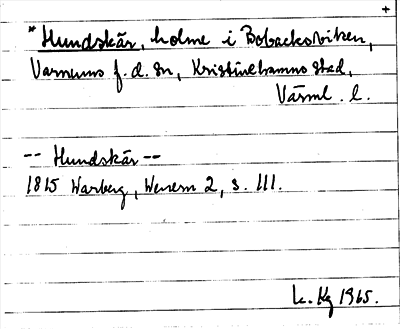 +
*Hundskär, holme i Bobacksviken,
Varnums f.d. sn, Kristinehamns stad,
Värml. l.
-- Hundskär --
1815 Warberg, Wenern 2, s. III.
L. Kg 1965.